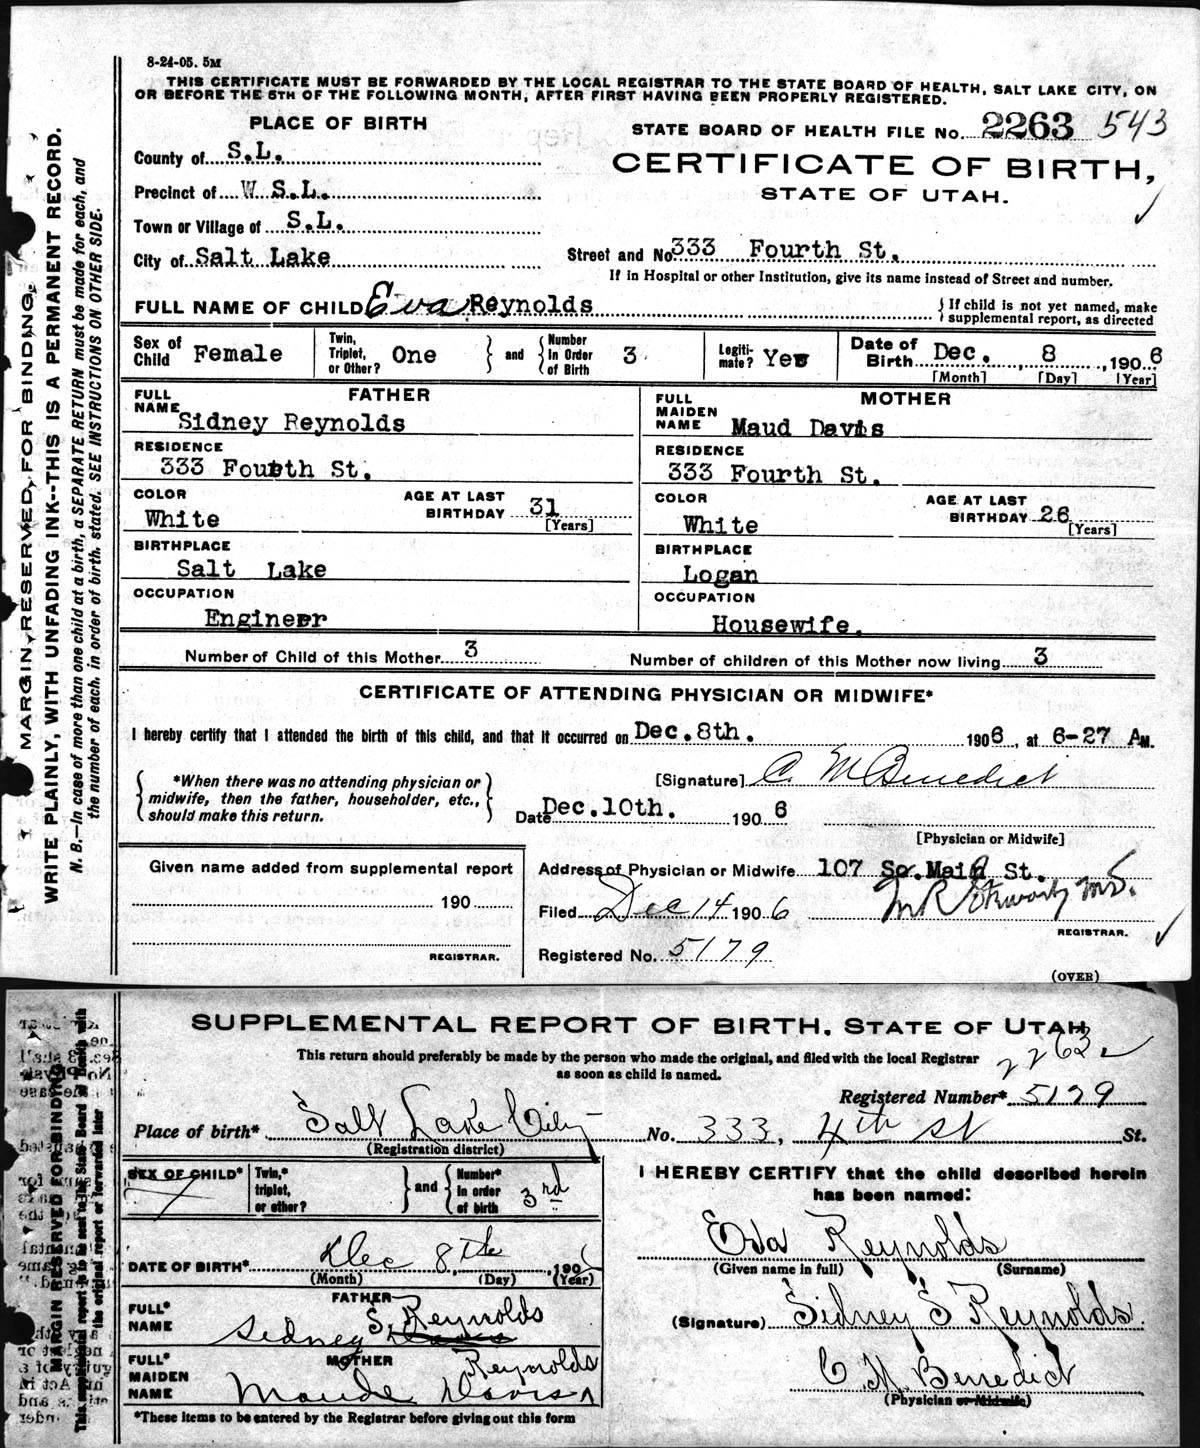 8-24-05. 5M
THIS CERTIFICATE MUST BE FORWARDED BY THE LOCAL REGISTRAR TO THE STATE BOARD OF HEALTH, SALT LAKE CITY, ON
OR BEFORE THE 5TH OF THE FOLLOWING MONTH, AFTER FIRST HAVING BEEN PROPERLY REGISTERED.
PLACE OF BIRTH
STATE BOARD OF HEALTH FILE No. 2263 543
County of S.L.
CERTIFICATE OF BIRTH,
Precinct of W S.L.
STATE OF UTAH.
Town or Village of S.L.
City of Salt Lake
Street and No. 333 Fourth St.
If in Hospital or other Institution, give its name instead of Street and number.
FULL NAME OF CHILD Eva Reynolds
{ If child is not yet named, make
supplemental report, as directed
Sex of Child Female
Twin, Triplet, or Other? One
and
Number in Order of Birth 3
Legitimate? Yes
Date of Birth Dec. 8, 1906
[Month] [Day] [Year]
FATHER
FULL NAME Sidney Reynolds
RESIDENCE
333 Fourth St.
COLOR White
AGE AT LAST BIRTHDAY 31
[Years]
BIRTHPLACE
Salt Lake
OCCUPATION
Engineer
MOTHER
FULL MAIDEN NAME Maud Davis
RESIDENCE
333 Fourth St.
COLOR White
AGE AT LAST BIRTHDAY 26
[Years]
BIRTHPLACE
Logan
OCCUPATION
Housewife.
Number of Child of this Mother 3
Number of children of this Mother now living 3
CERTIFICATE OF ATTENDING PHYSICIAN OR MIDWIFE*
I hereby certify that I attended the birth of this child, and that it occurred on Dec. 8th. 1906, at 6-27 AM.
*When there was no attending physician or
midwife, then the father, householder, etc.,
should make this return.
[Signature] C. M Benedict
Date Dec. 10th. 1906
[Physician or Midwife]
Given name added from supplemental report
190
REGISTRAR.
Address of Physician or Midwife 107 So. Main St.
Filed Dec 14 1906
REGISTRAR.
Registered No. 5179
(OVER)
MARGIN RESERVED FOR BINDING.
WRITE PLAINLY, WITH UNFADING INK--THIS IS A PERMANENT RECORD.
N. B.—In case of more than one child at a birth, a SEPARATE RETURN must be made for each, and
the number of each, in order of birth, stated. SEE INSTRUCTIONS ON OTHER SIDE.
SUPPLEMENTAL REPORT OF BIRTH. STATE OF UTAH
This return should preferably be made by the person who made the original, and filed with the local Registrar
as soon as child is named.
2263
Registered Number* 5179
Place of birth* Salt Lake City No. 333, 4th st St.
(Registration district)
SEX OF CHILD*
Twin,* triplet, or other?
and
Number* in order of birth 3rd
DATE OF BIRTH* Dec 8th, 1906
(Month) (Day) (Year)
FATHER
FULL* NAME Sidney S. Reynolds
MOTHER
FULL* MAIDEN NAME Maude Davis Reynolds
*These items to be entered by the Registrar before giving out this form
I HEREBY CERTIFY that the child described herein
has been named:
Eva Reynolds
(Given name in full) (Surname)
(Signature) Sidney S Reynolds.
C M Benedict
(Physician or Midwife)
MARGIN RESERVED FOR BINDING
This supplemental report is to be sent to the State Board of Health with
the original report or forwarded later